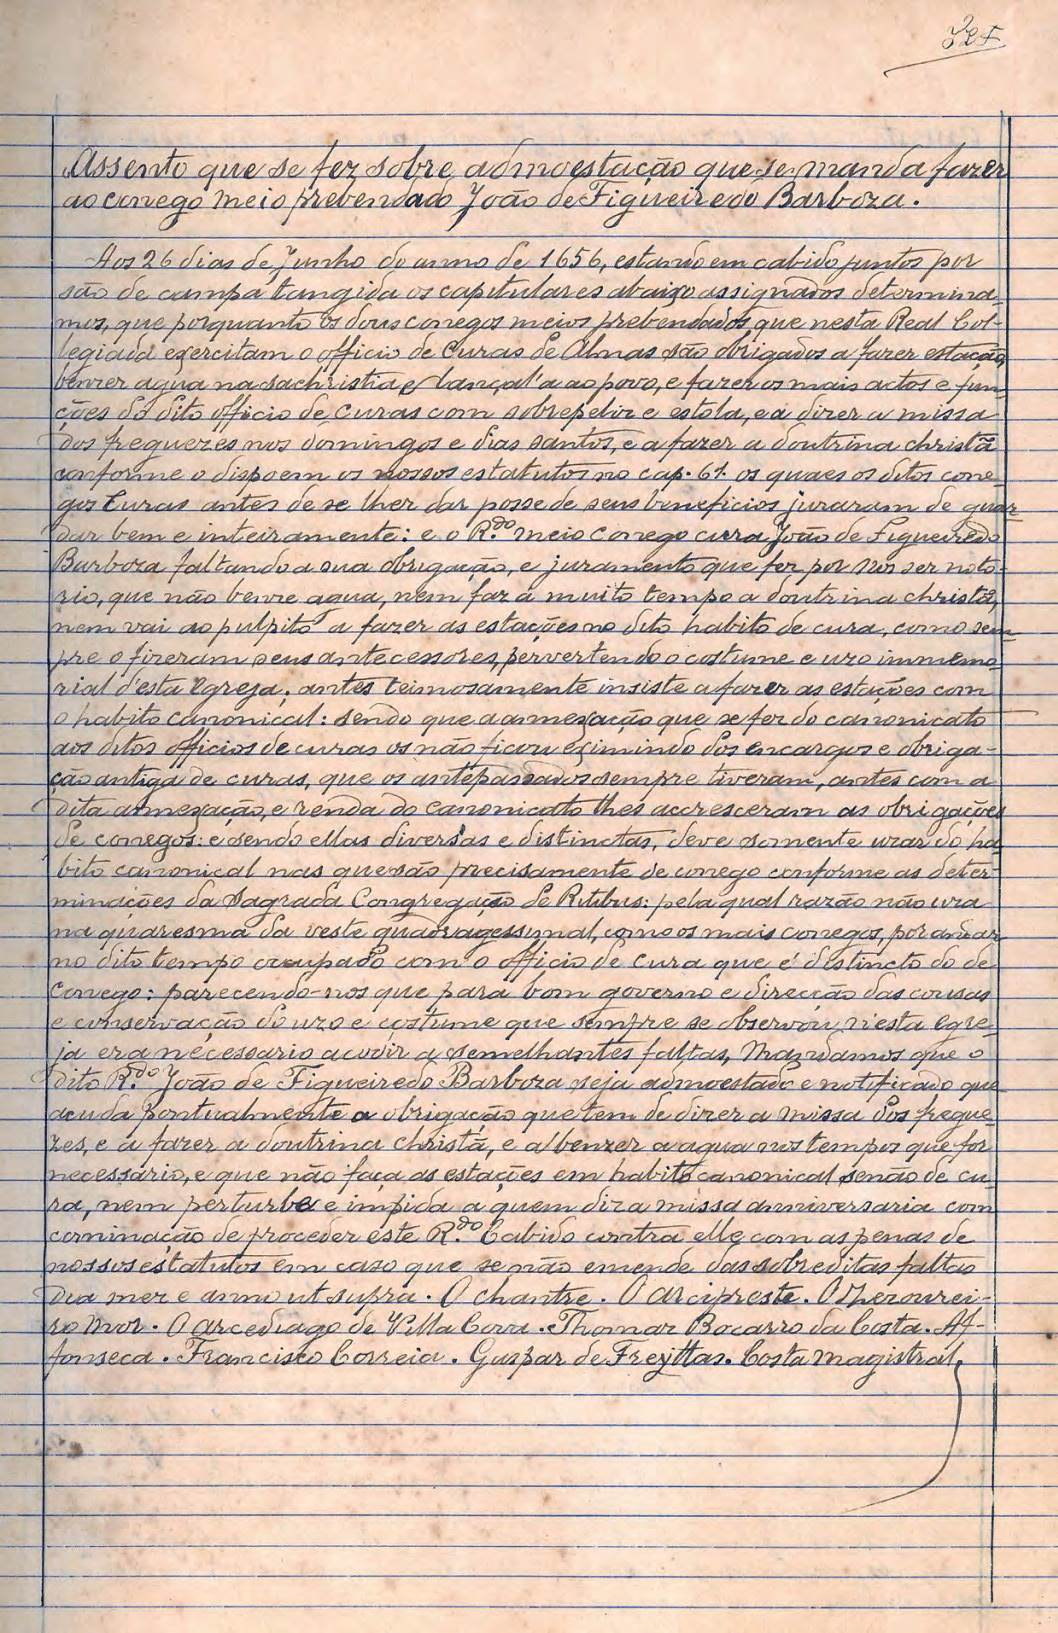 Assento que se fez sobre admoestação que se manda fazer
ao conego meio prebendado João de Figueiredo Barboza.
Aos 26 dias de Junho do anno de 1656, estando em cabido juntos por
são de campa tangida os capitulares abaixo assignados determina-
mos, que porquanto os dous conegos meios prebendados, que nesta Real Col-
legiada exercitam o officio de Curas de Almas são obrigados a fazer estação,
benzer agua na sachristia e lançal'a ao povo, e fazer os mais actos e fun-
ções do dito officio de Curas com sobrepeliz e estola, e a dizer a missa
dos freguezes nos domingos e dias santos, e a fazer a doutrina christã
conforme o dispoem os nossos estatutos no cap. 61. os quaes os ditos cone-
gos Curas antes de se lher dar posse de seus beneficios juraram de guar-
dar bem e inteiramente: e o R.do meio Conego cura João de Figueiredo
Barboza faltando a sua obrigação, e juramento que fez, por nos ser noto-
rio, que não benze agua, nem faz á muito tempo a doutrina christã,
nem vai ao pulpito a fazer as estações no dito habito de cura, como sem-
pre o fizeram seus antecessores, pervertendo o costume e uzo immemo-
rial d'esta Egreja; antes teimosamente insiste a fazer as estações com
o habito canonical: sendo que a annexação que se fez do canonicato
aos ditos officios de curas os não ficou eximindo dos encargos e obriga-
ção antiga de curas, que os antepassados sempre tiveram, antes com a
dita annexação, e renda do canonicato lhes accresceram as obrigações
de conegos: e sendo ellas diversas e distinctas, deve somente uzar do ha-
bito canonical nas que são precisamente de conego conforme as deter-
minações da Sagrada Congregação de Ritibus: pela qual razão não uza
na quaresma da veste quadragessimal, como os mais conegos, por andar
no dito tempo occupado com o officio de Cura que é distincto do de
Conego: parecendo-nos que para bom governo e direcção das cousas
e conservação do uzo e costume que sempre se observou n'esta Egre-
ja era necessario acudir a semelhantes faltas, Mandamos que o
dito R.do João de Figueiredo Barboza seja admoestado e notificado que
acuda pontualmente a obrigação que tem de dizer a missa dos fregue-
zes, e a fazer a doutrina christã, e a benzer a agua nos tempos que for
necessário, e que não faça as estações em habito canonical senão de cu-
ra, nem perturbe e impida a quem diz a missa anniversaria com
cominação de proceder este R.do Cabido contra elle com as penas de
nossos estatutos em caso que se não emende das sobreditas faltas
Dia mez e anno ut supra. O chantre. O Arcipreste. O Thezourei-
ro Mor. O Arcediago de Villa Cova. Thomaz Bocarro da Costa. Af-
fonseca. Francisco Correia. Gaspar de Freyttas. Costa Magistral.